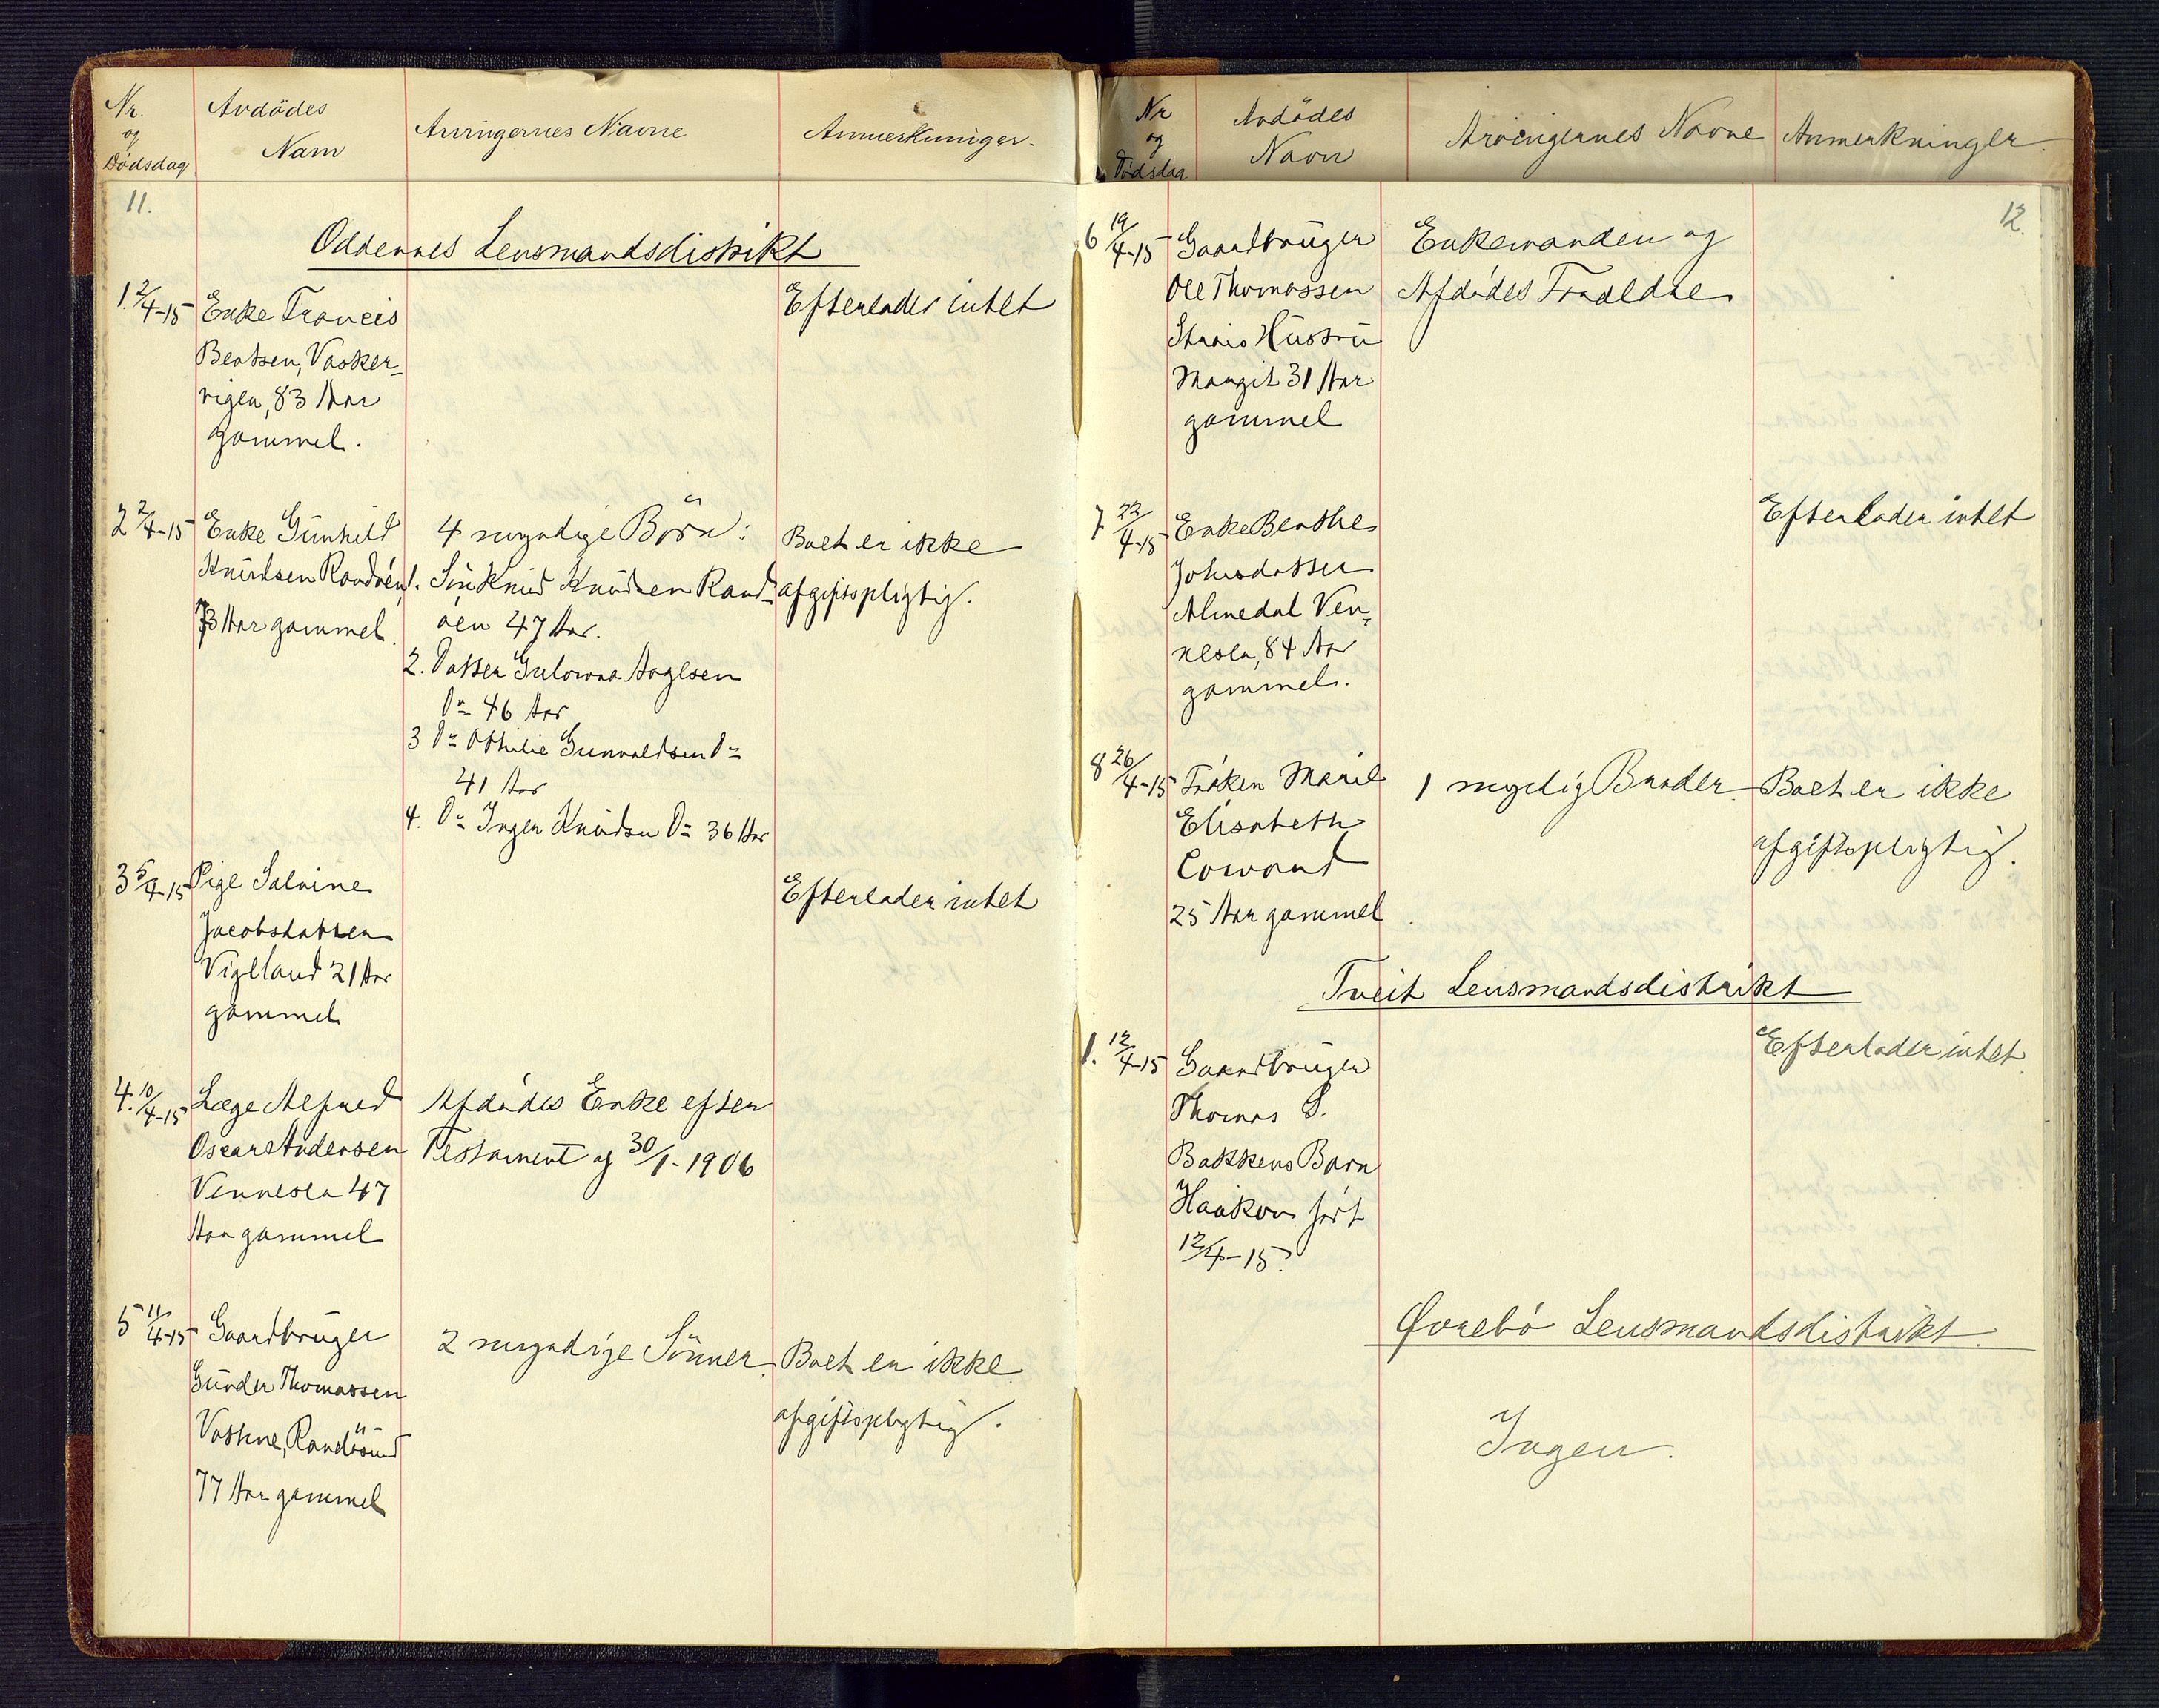 Nr.
og
Dödsdag
Avdödes
Navn
Arvingernes Navne
Anmerkninger.
11.
Oddernes Lensmandsdistrikt
1. 2/4-15 Enke Francis
Berntsen, Vasker-
vigen, 83 Aar
gammel.
Efterlader intet
2 2/4-15 Enke Gunhild
Knudsen Randøen
73 Aar gammel.
4 myndige Börn:
1. Sön Knud Knudsen Rand-
öen 47 Aar.
2. Datter Gulowna Aagesen
Do 46 Aar
3 Do Othilie Gunvaldsen Do
41 Aar
4. Do Inger Knudsen Do 36 Aar
Boet er ikke
afgiftspligtig.
3 5/4-15 Pige Salvine
Jacobsdatter
Vigeland 21 Aar
gammel
Efterlader intet
4. 10/4-15 Læge Alfred
Oscar Andersen
Vennesla 47
Aar gammel
Afdødes Enke efter
Testament af 30/1-1906
5 11/4-15 Gaardbruger
Gunder Thomassen
Vathne, Randösund
77 Aar gammel
2 myndige Sönner.
Boet er ikke
afgiftspligtig.
Nr
og
Dödsdag
Avdödes
Navn
Arvingernes Navne
Anmerkninger.
12.
6 19/4-15 Gaardbruger
Ole Thomassen
Strais Hustru
Margit 31 Aar
gammel
Enkemanden og
Afdødes Forældre
7 22/4-15 Enke Berthe
Johnsdatter
Almedal Ven-
nesla, 84 Aar
gammel.
Efterlader intet
8 26/4-15 Fröken Marie
Elisabeth
Coward
25 Aar gammel.
1 myndig Broder
Boet er ikke
afgiftspligtig.
Tveit Lensmandsdistrikt
1. 12/4-15 Gaardbruger
Thomas S.
Bakkens Barn
Haakon født
12/4-15.
Efterlader intet.
Øvrebö Lensmandsdistrikt.
Ingen.